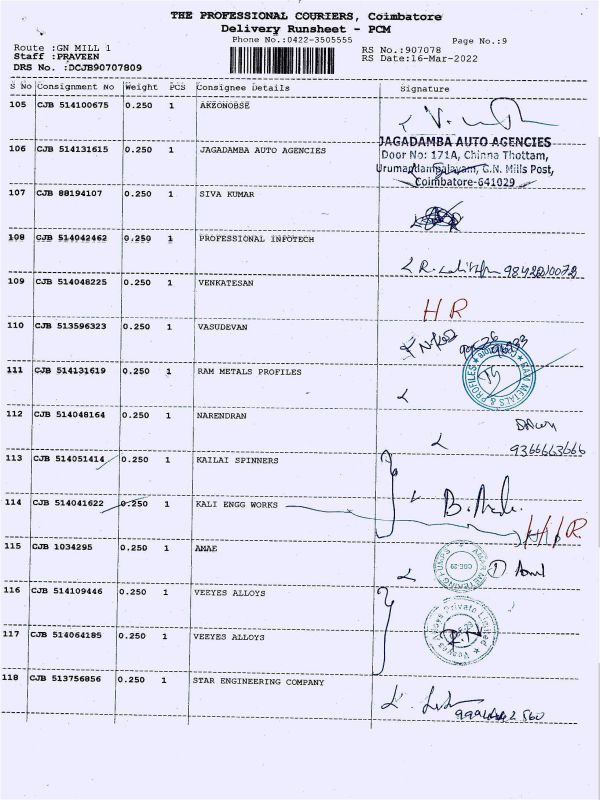 THE PROFESSIONAL COURIERS, Coimbatore
Delivery Runsheet - PCM
Phone No.:0422-3505555
Page No.:9
Route :GN MILL 1
RS No.:907078
Staff :PRAVEEN
RS Date:16-Mar-2022
DRS No. :DCJB90707809
S No Consignment No Weight PCS Consignee Details Signature
105 CJB 514100675 0.250 1 AKZONOBSE
106 CJB 514131615 0.250 1 JAGADAMBA AUTO AGENCIES
JAGADAMBA AUTO AGENCIES
Door No: 171A, Chinna Thottam,
Urumandampalayam, G.N. Mills Post,
Coimbatore-641029
107 CJB 88194107 0.250 1 SIVA KUMAR
108 CJB 514042462 0.250 1 PROFESSIONAL INFOTECH
109 CJB 514048225 0.250 1 VENKATESAN
HR
110 CJB 513596323 0.250 1 VASUDEVAN
111 CJB 514131619 0.250 1 RAM METALS PROFILES
RAM METALS & PROFILES
112 CJB 514048164 0.250 1 NARENDRAN
9366663666
113 CJB 514051414 0.250 1 KAILAI SPINNERS
114 CJB 514041622 0.250 1 KALI ENGG WORKS
115 CJB 1034295 0.250 1 AMAE
116 CJB 514109446 0.250 1 VEEYES ALLOYS
Veeyes Alloys Private Limited
117 CJB 514064185 0.250 1 VEEYES ALLOYS
118 CJB 513756856 0.250 1 STAR ENGINEERING COMPANY